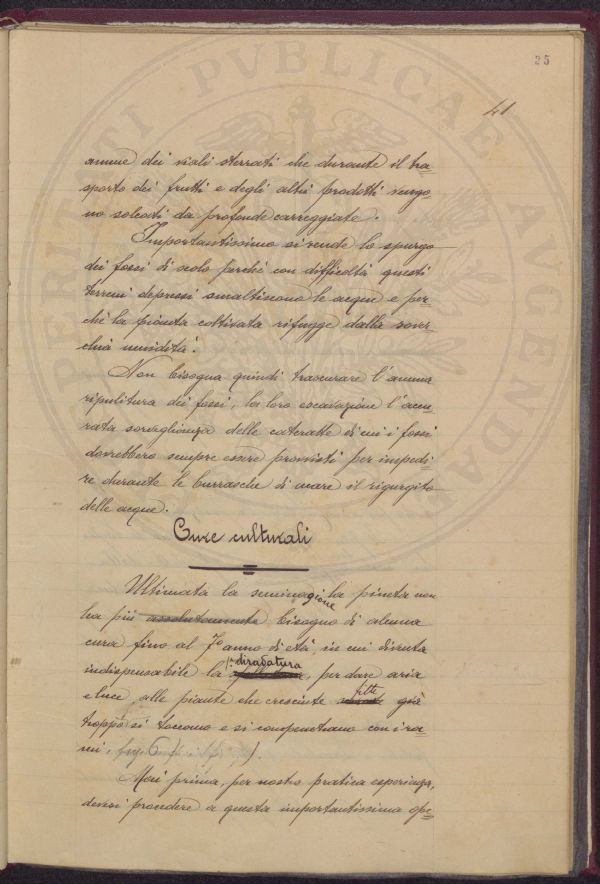 25
41
annue dei viali sterrati che durante il tra=
sporto dei frutti e degli altri prodotti vengo=
no solcati da profonde carreggiate.
Importantissimo si rende lo spurgo
dei fossi di scolo perchè con difficoltà questi
terreni depressi smaltiscono le acque e per=
chè la pianta coltivata rifugge dalla sover=
chia umidità.
Non bisogna quindi trascurare l'annua
ripulitura dei fossi, la loro escavazione l'accu=
rata sorveglianza delle cateratte di cui i fossi
dovrebbero sempre essere provvisti per impedi=
re durante le burrasche di mare il rigurgito
delle acque.
Cure culturali
Ultimata la seminagione la pineta non
ha più assolutamente bisogno di alcuna
cura fino al 7º anno di età, in cui diventa
indispensabile la 1ª diradatura, per dare aria
e luce alle piante che cresciute fitte già
troppo si toccano e si compenetrano con i ra=
mi
Mai prima, per nostra pratica esperienza,
devesi procedere a questa importantissima ope=
PUBLICAE